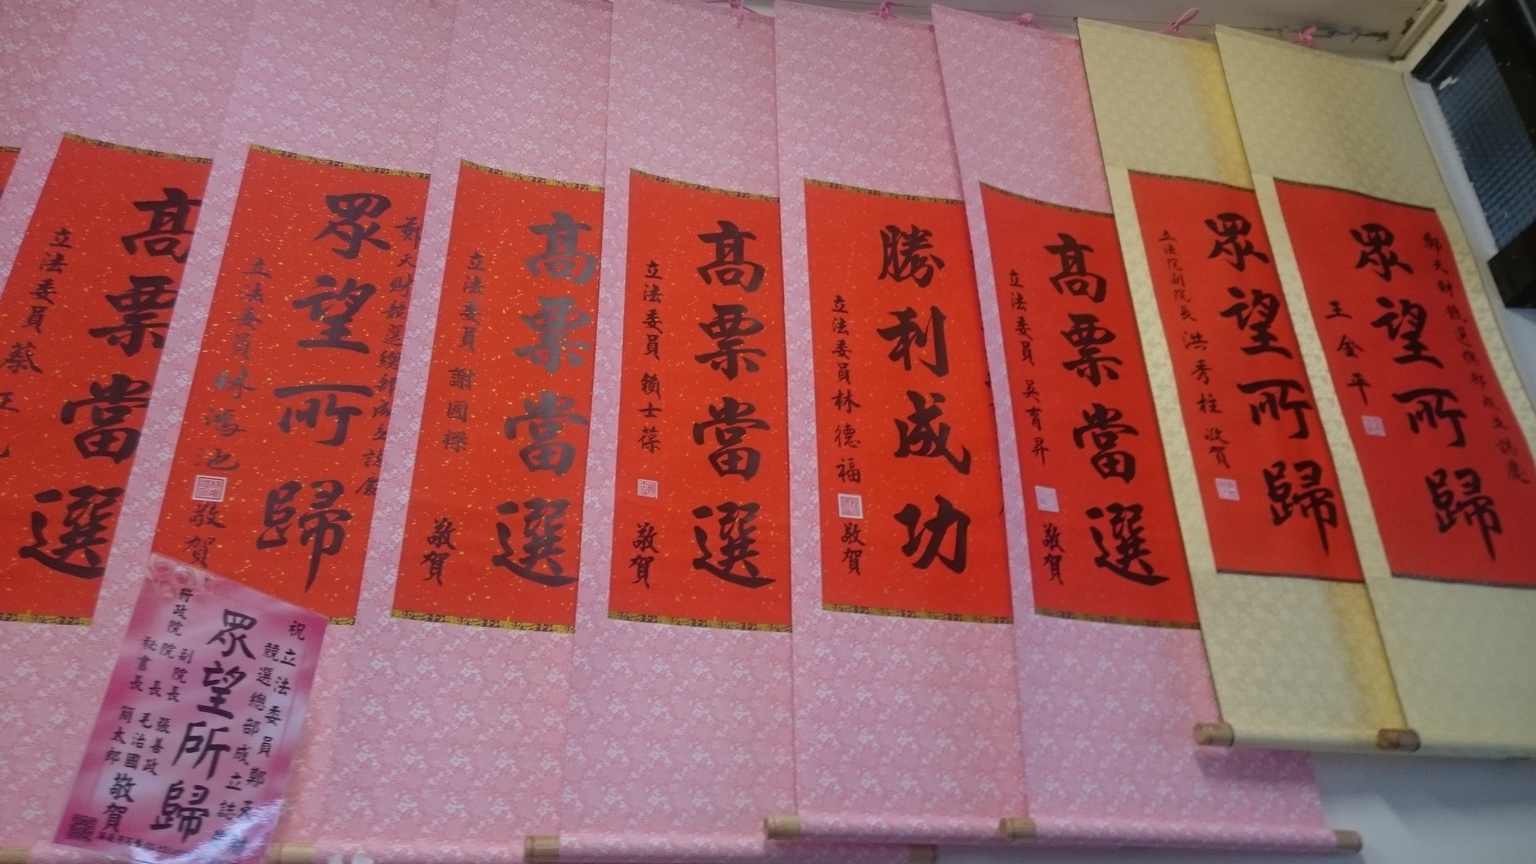 鄭天財競選總部成立誌慶
眾望所歸
王金平
眾望所歸
立法院副院長 洪秀柱 敬賀
高票當選
立法委員 吳育昇
敬賀
勝利成功
立法委員林德福
敬賀
高票當選
立法委員 賴士葆
敬賀
高票當選
立法委員 謝國樑
敬賀
鄭天財競選總部成立誌慶
眾望所歸
立法委員林鴻池
敬賀
高票當選
立法委員 蔡正
祝 立法委員鄭天
競選總部成立誌
眾望所歸
行政院
院長
副院長
秘書長
毛治國
張善政
簡太郎
敬賀